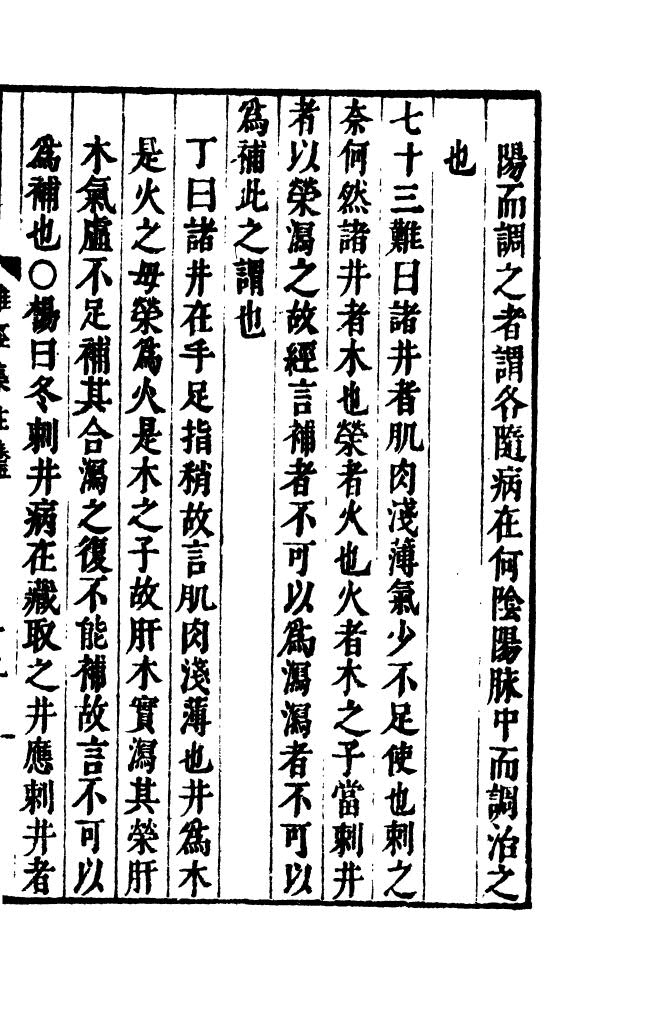 陽而調之者謂各隨病在何陰陽脉中而調治之
也
七十三難曰諸井者肌肉淺薄氣少不足使也刺之
奈何然諸井者木也榮者火也火者木之子當刺井
者以榮瀉之故經言補者不可以爲瀉瀉者不可以
爲補此之謂也
丁曰諸井在手足指稍故言肌肉淺薄也井爲木
是火之母榮爲火是木之子故肝木實瀉其榮肝
木氣虛不足補其合瀉之復不能補故言不可以
爲補也○楊曰冬刺井病在藏取之井應刺井者